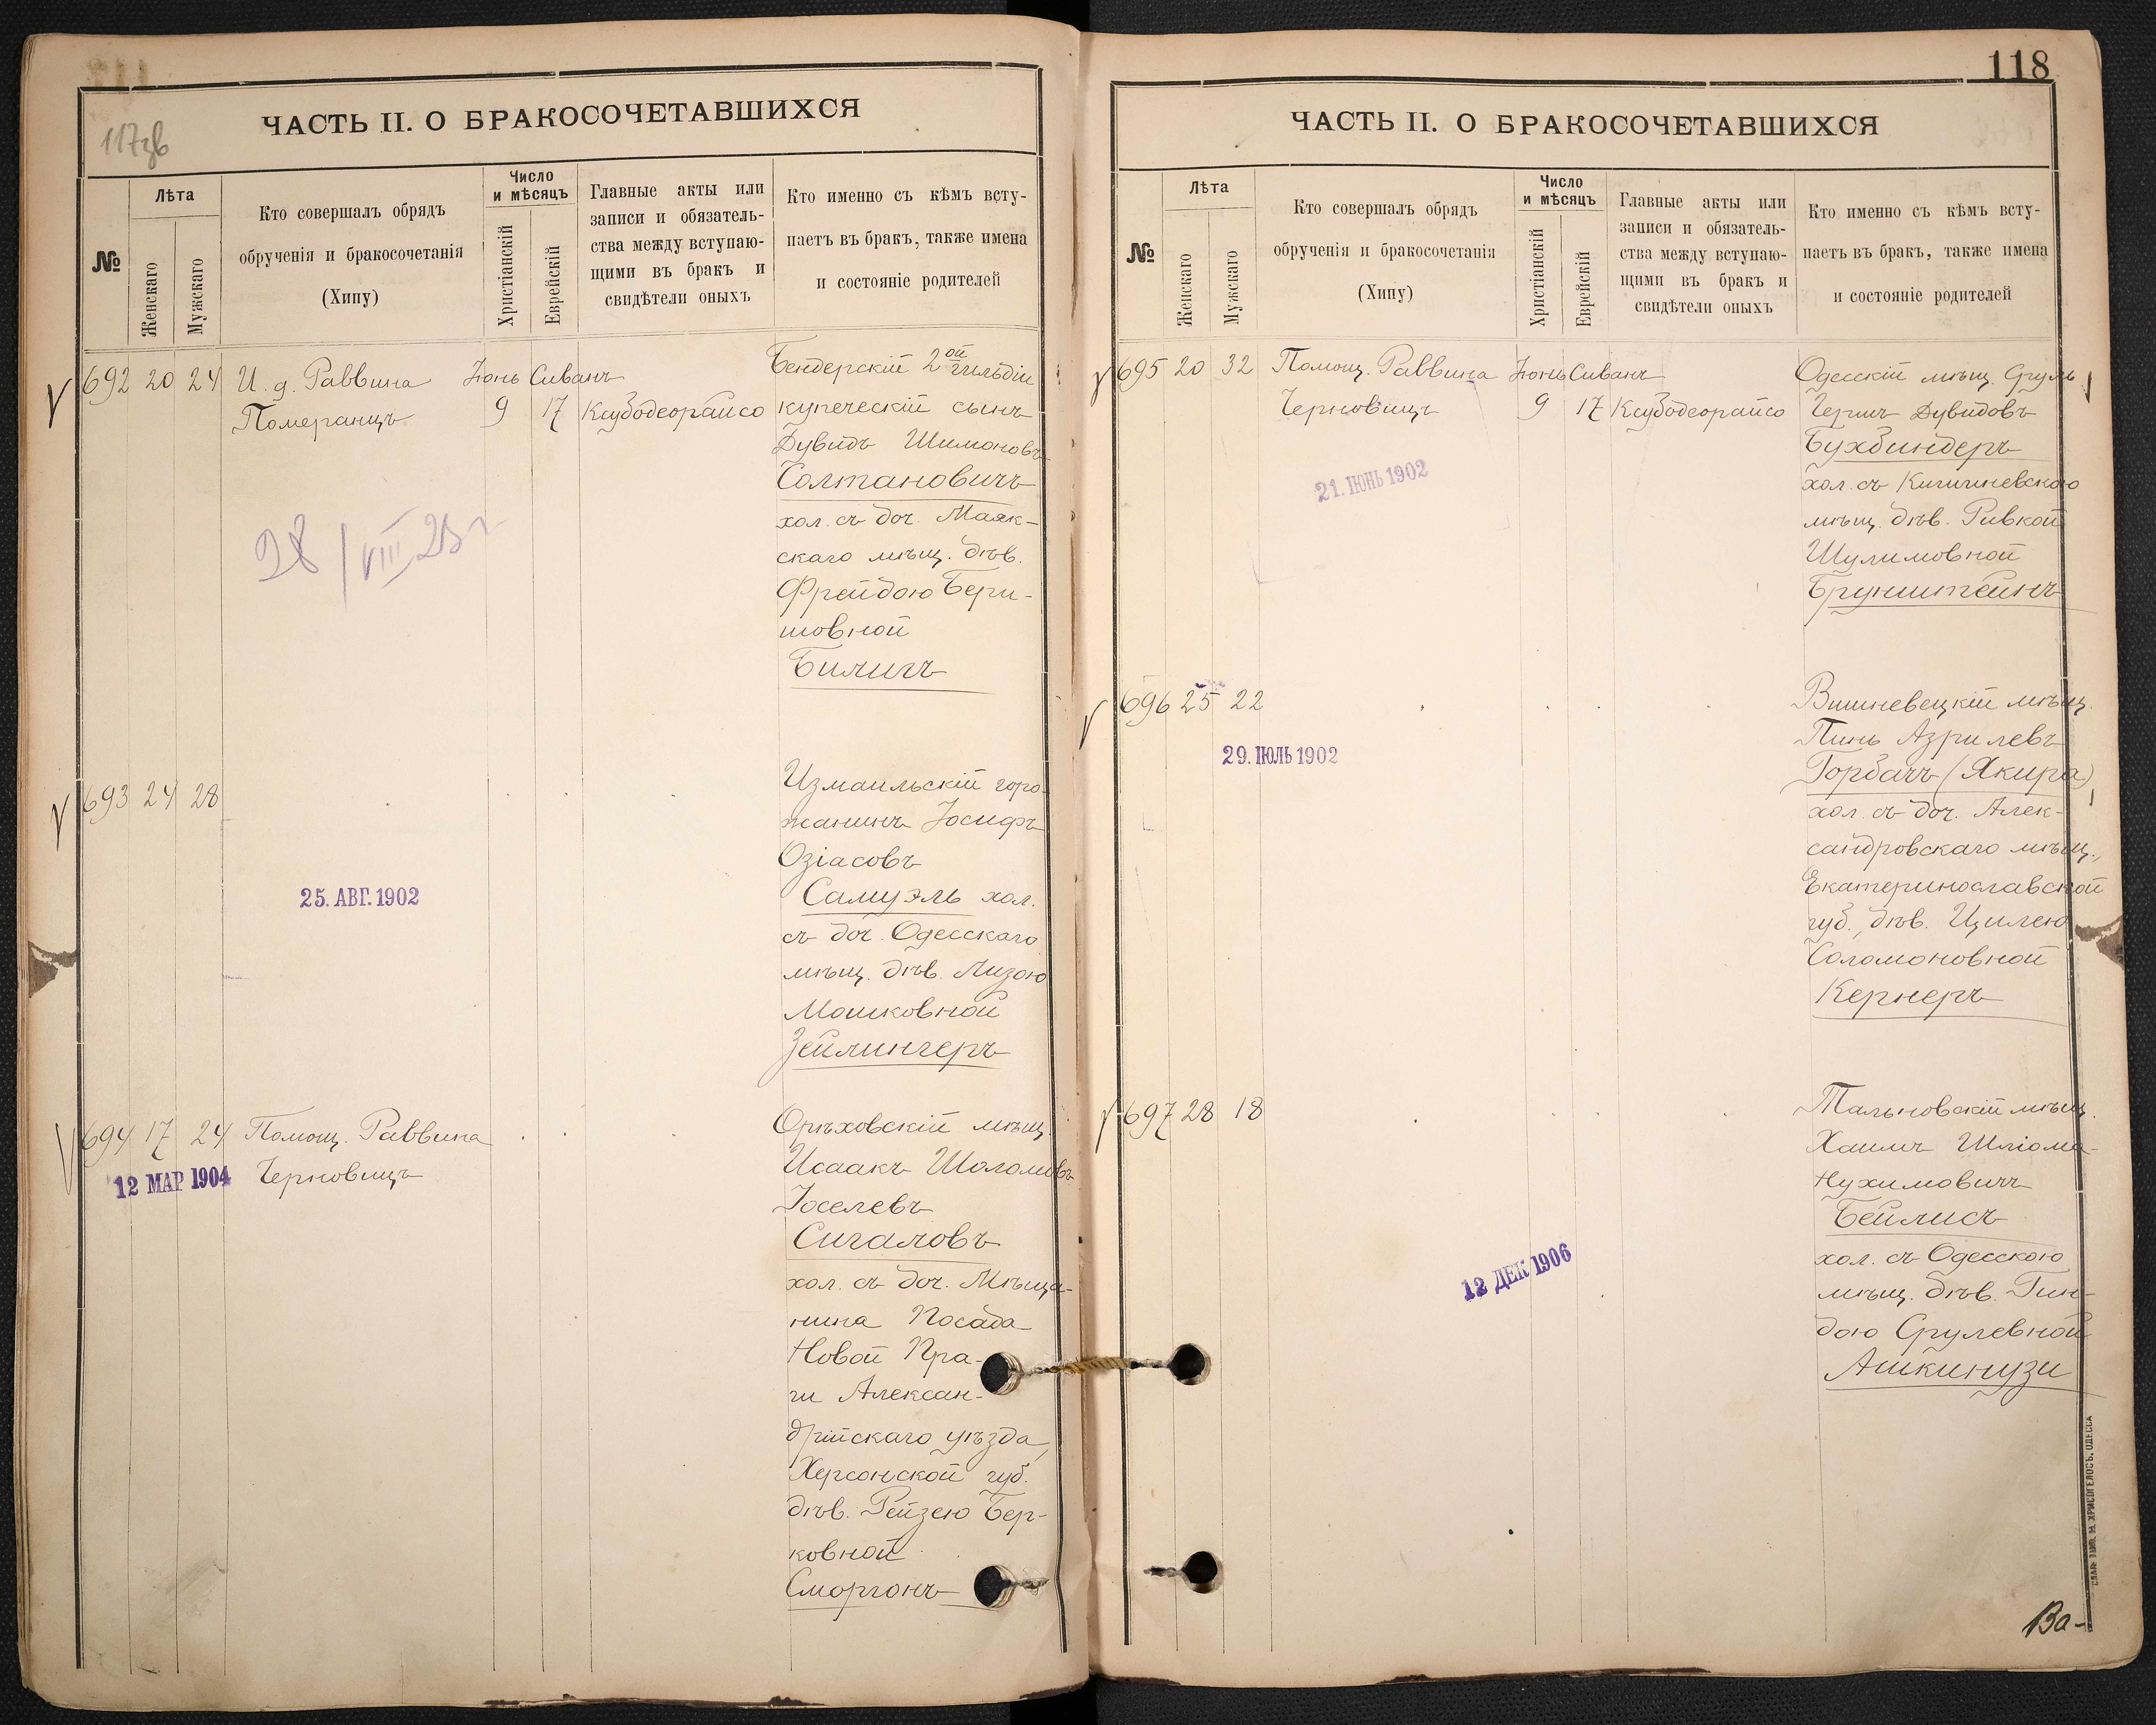 117зв
ЧАСТЬ II. О БРАКОСОЧЕТАВШИХСЯ
№
Лѣта
Женскаго
Мужскаго
Кто совершалъ обрядъ
обрученія и бракосочетанія
(Хипу)
Число
и мѣсяцъ
Христіанскій
Еврейскій
Главные акты или
записи и обязатель-
ства между вступаю-
щими въ бракъ и
свидѣтели оныхъ
Кто именно съ кѣмъ всту-
паетъ въ бракъ, также имена
и состояніе родителей
692 20 24 И. д. Раввина Іюнь Сиванъ
Померанцъ 9 17 Ксубодеорайсо
Бендерскій 2ой гильдіи
купеческій сынъ
Дувидъ Шимоновъ
Солтановичъ
хол. съ доч. Маяк-
скаго мѣщ. дѣв.
Фрейдою Бери-
шовной
Биличъ
28/VIII 23 г
693 24 28
25. АВГ. 1902
Измаильскій горо-
жанинъ Іосифъ
Озіасовъ
Самуэль хол.
съ доч. Одесскаго
мѣщ. дѣв. Лизою
Мошковной
Зейлингеръ
694 17 24 Помощ. Раввина
12 МАР 1904 Черновицъ
Орѣховскій мѣщ.
Исаакъ Шоломовъ
Іоселевъ
Сигаловъ
хол. съ доч. Мѣща-
нина Посада
Новой Пра-
ги Алексан-
дрійскаго уѣзда,
Херсонской губ.
дѣв. Рейзею Бер-
ковной
Сморгонъ
118
ЧАСТЬ II. О БРАКОСОЧЕТАВШИХСЯ
№
Лѣта
Женскаго
Мужскаго
Кто совершалъ обрядъ
обрученія и бракосочетанія
(Хипу)
Число
и мѣсяцъ
Христіанскій
Еврейскій
Главные акты или
записи и обязатель-
ства между вступаю-
щими въ бракъ и
свидѣтели оныхъ
Кто именно съ кѣмъ всту-
паетъ въ бракъ, также имена
и состояніе родителей
695 20 32 Помощ. Раввина Іюнь Сиванъ
Черновицъ 9 17 Ксубодеорайсо
21. ІЮНЬ 1902
Одесскій мѣщ. Сруль
Гершъ Дувидовъ
Бухбиндеръ
хол. съ Кишиневскою
мѣщ. дѣв. Ривкой
Шулимовной
Брунштейнъ
696 25 22
29. ІЮЛЬ 1902
Вишневецкій мѣщ.
Пинь Азрилевъ
Горбачъ (Якира)
хол. съ доч. Алек-
сандровскаго мѣщ.,
Екатеринославской
губ., дѣв. Цилею
Соломоновной
Кернеръ
697 28 18
12 ДЕК 1906
Тальновскій мѣщ.
Хаимъ Шліома-
Нухимовичъ
Бейлисъ
хол. съ Одесскою
мѣщ. дѣв. Гин-
дою Срулевной
Ашкинузи
ХРИСОГЕЛОСЪ, ОДЕССА